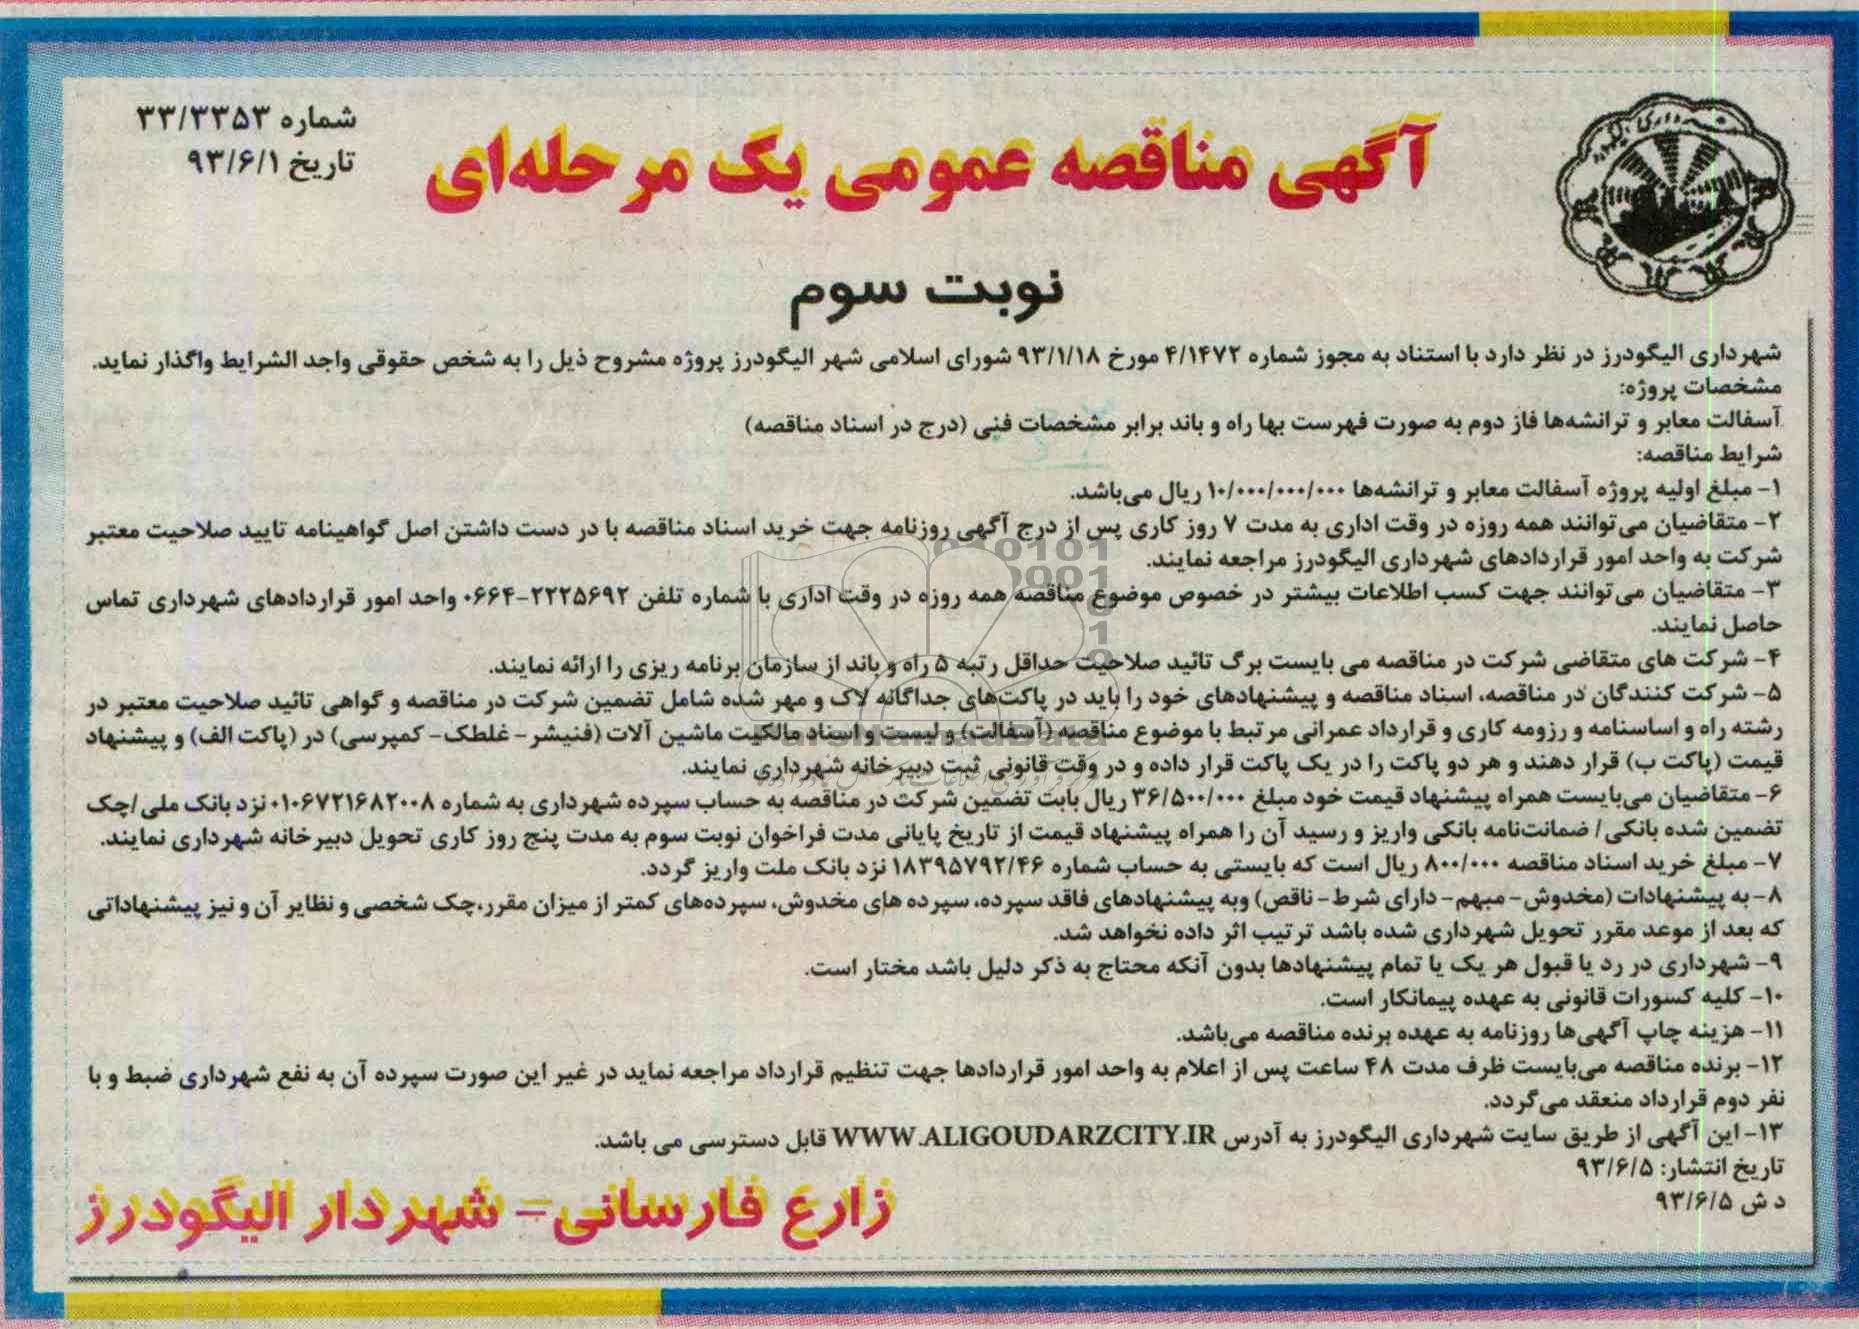 شماره ۳۳/۳۳۵۳
تاریخ ۹۳/۶/۱
آگهی مناقصه عمومی یک مرحله‌ای
نوبت سوم
شهرداری الیگودرز در نظر دارد با استناد به مجوز شماره ۴/۱۴۷۲ مورخ ۹۳/۱/۱۸ شورای اسلامی شهر الیگودرز پروژه مشروح ذیل را به شخص حقوقی واجد الشرایط واگذار نماید.
مشخصات پروژه:
آسفالت معابر و ترانشه‌ها فاز دوم به صورت فهرست بها راه و باند برابر مشخصات فنی (درج در اسناد مناقصه)
شرایط مناقصه:
۱- مبلغ اولیه پروژه آسفالت معابر و ترانشه‌ها ۱۰/۰۰۰/۰۰۰/۰۰۰ ریال می‌باشد.
۲- متقاضیان می‌توانند همه روزه در وقت اداری به مدت ۷ روز کاری پس از درج آگهی روزنامه جهت خرید اسناد مناقصه با در دست داشتن اصل گواهینامه تایید صلاحیت معتبر
شرکت به واحد امور قراردادهای شهرداری الیگودرز مراجعه نمایند.
۳- متقاضیان می‌توانند جهت کسب اطلاعات بیشتر در خصوص موضوع مناقصه همه روزه در وقت اداری با شماره تلفن ۲۲۲۵۶۹۲-۰۶۶۴ واحد امور قراردادهای شهرداری تماس
حاصل نمایند.
۴- شرکت های متقاضی شرکت در مناقصه می بایست برگ تائید صلاحیت حداقل رتبه ۵ راه و باند از سازمان برنامه ریزی را ارائه نمایند.
۵- شرکت کنندگان در مناقصه، اسناد مناقصه و پیشنهادهای خود را باید در پاکت‌های جداگانه لاک و مهر شده شامل تضمین شرکت در مناقصه و گواهی تائید صلاحیت معتبر در
رشته راه و اساسنامه و رزومه کاری و قرارداد عمرانی مرتبط با موضوع مناقصه (آسفالت) و لیست و اسناد مالکیت ماشین آلات (فنیشر- غلطک- کمپرسی) در (پاکت الف) و پیشنهاد
قیمت (پاکت ب) قرار دهند و هر دو پاکت را در یک پاکت قرار داده و در وقت قانونی ثبت دبیرخانه شهرداری نمایند.
۶- متقاضیان می‌بایست همراه پیشنهاد قیمت خود مبلغ ۳۶/۵۰۰/۰۰۰ ریال بابت تضمین شرکت در مناقصه به حساب سپرده شهرداری به شماره ۰۱۰۶۷۲۱۶۸۲۰۰۸ نزد بانک ملی /چک
تضمین شده بانکی / ضمانت‌نامه بانکی واریز و رسید آن را همراه پیشنهاد قیمت از تاریخ پایانی مدت فراخوان نوبت سوم به مدت پنج روز کاری تحویل دبیرخانه شهرداری نمایند.
۷- مبلغ خرید اسناد مناقصه ۸۰۰/۰۰۰ ریال است که بایستی به حساب شماره ۱۸۳۹۵۷۹۲/۴۶ نزد بانک ملت واریز گردد.
۸- به پیشنهادات (مخدوش- مبهم- دارای شرط- ناقص) وبه پیشنهادهای فاقد سپرده، سپرده های مخدوش، سپرده‌های کمتر از میزان مقرر،چک شخصی و نظایر آن و نیز پیشنهاداتی
که بعد از موعد مقرر تحویل شهرداری شده باشد ترتیب اثر داده نخواهد شد.
۹- شهرداری در رد یا قبول هر یک یا تمام پیشنهادها بدون آنکه محتاج به ذکر دلیل باشد مختار است.
۱۰- کلیه کسورات قانونی به عهده پیمانکار است.
۱۱- هزینه چاپ آگهی‌ها روزنامه به عهده برنده مناقصه می‌باشد.
۱۲- برنده مناقصه می‌بایست ظرف مدت ۴۸ ساعت پس از اعلام به واحد امور قراردادها جهت تنظیم قرارداد مراجعه نماید در غیر این صورت سپرده آن به نفع شهرداری ضبط و با
نفر دوم قرارداد منعقد می‌گردد.
۱۳- این آگهی از طریق سایت شهرداری الیگودرز به آدرس WWW.ALIGOUDARZCITY.IR قابل دسترسی می باشد.
تاریخ انتشار: ۹۳/۶/۵
د ش ۹۳/۶/۵
زارع فارسانی- شهردار الیگودرز